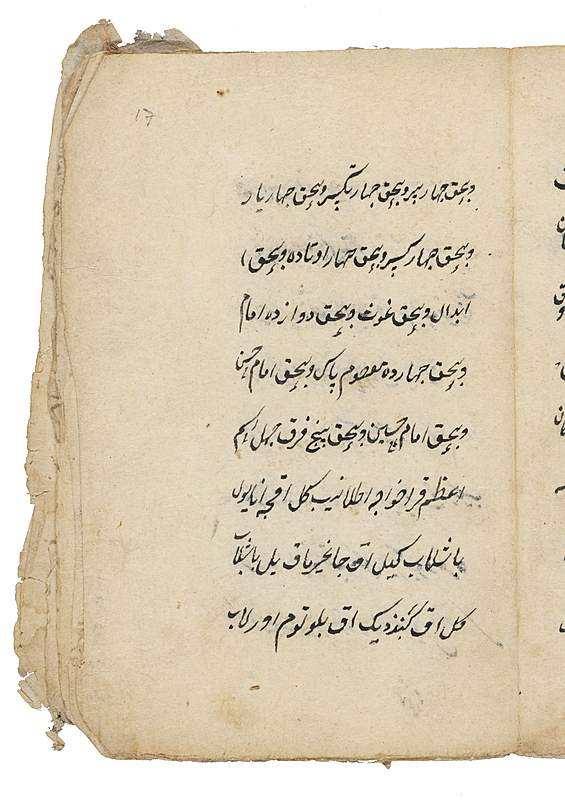 17
وبحق چهار پیر وبحق چهار تکبیر وبحق چهار یار
وبحق چهار کسیر وبحق چهار اوتاده وبحق
ابدال وبحق غوث وبحق دوازده امام
وبحق چهارده معصوم پاس وبحق امام حسن
وبحق امام حسین وبحق پنج فرق چهل اسم
اعظم قرا خواجه اطلانیب کل اقچه انا یول
باشلاب کیل اق جانخیر یاق یل باشلاب
کل اق گنبذدیک اق بلوتوم اورلاب